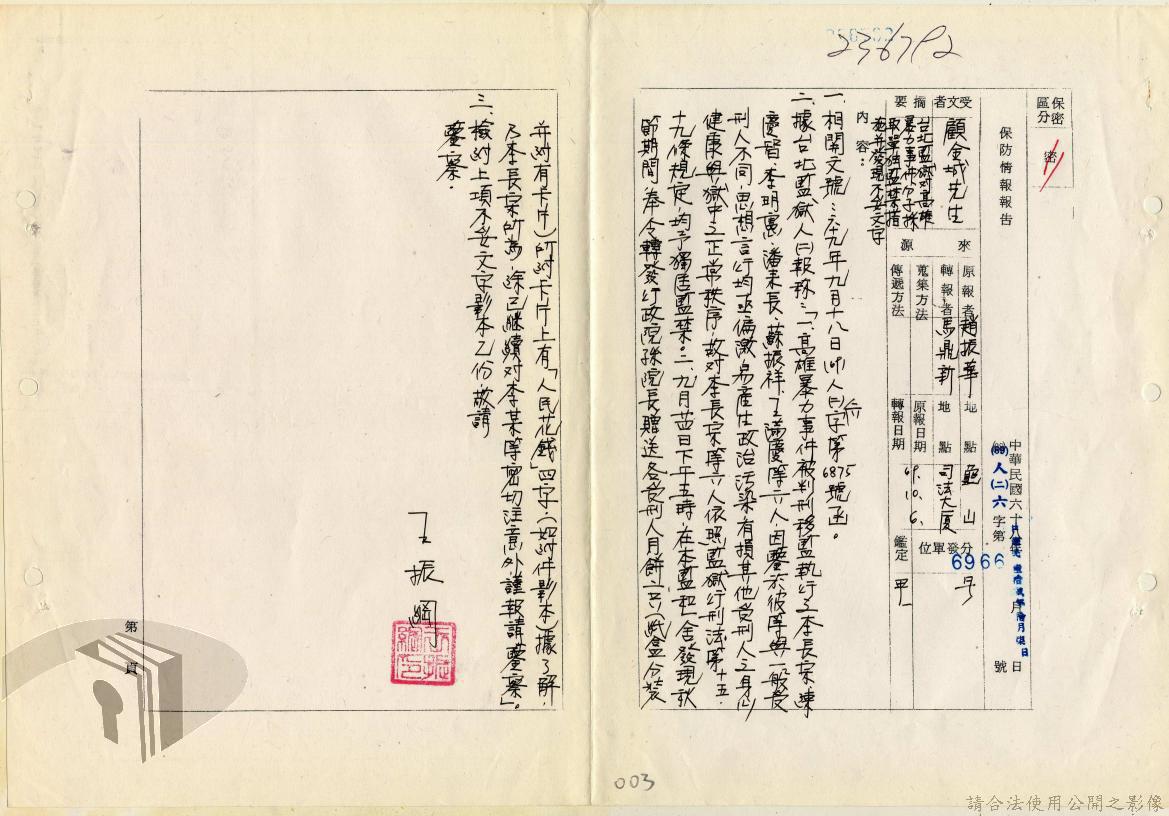 236792
保密區分
密
保防情報報告
中華民國六十 年 月 日
(69)人(二)六字第6966號
受文者
顧金城先生
摘要
台北監獄對高雄
暴力事件份子採
取單獨監禁措
施并發現不妥文字
來源
原報者
趙振華
地點
龜山
轉報者
馬鼎新
地點
司法大廈
蒐集方法
原報日期
69.10.6.
傳遞方法
轉報日期
分發單位
鑑定
內容：
一、相關文號：六十九年九月十八日(69)人㈡字第6875號函。
二、據台北監獄人㈡報称：「一、高雄暴力事件被判刑移監執行之李長宗、陳
慶智、李明憲、潘來長、蘇振祥、王滿慶等六人，因鑒於彼等與一般受
刑人不同，思想言行均亟偏激，易產生政治污染，有損其他受刑人之身心
健康與獄中之正常秩序，故對李長宗等六人依照監獄行刑法第十五、
十九條規定，均予獨居監禁。二、九月廿四日下午五時，在本監和一舍發現秋
節期間，奉令轉發行政院孫院長贈送各受刑人月餅之紙盒(分裝
并附有卡片)所附卡片上有「人民花錢」四字，(如附件影本)據了解，
乃李長宗所為，除已繼續對李某等密切注意外，謹報請鑒察」。
三、檢附上項不妥文字影本乙份，敬請
鑒察。
王振綱
第 頁
003
請合法使用公開之影像